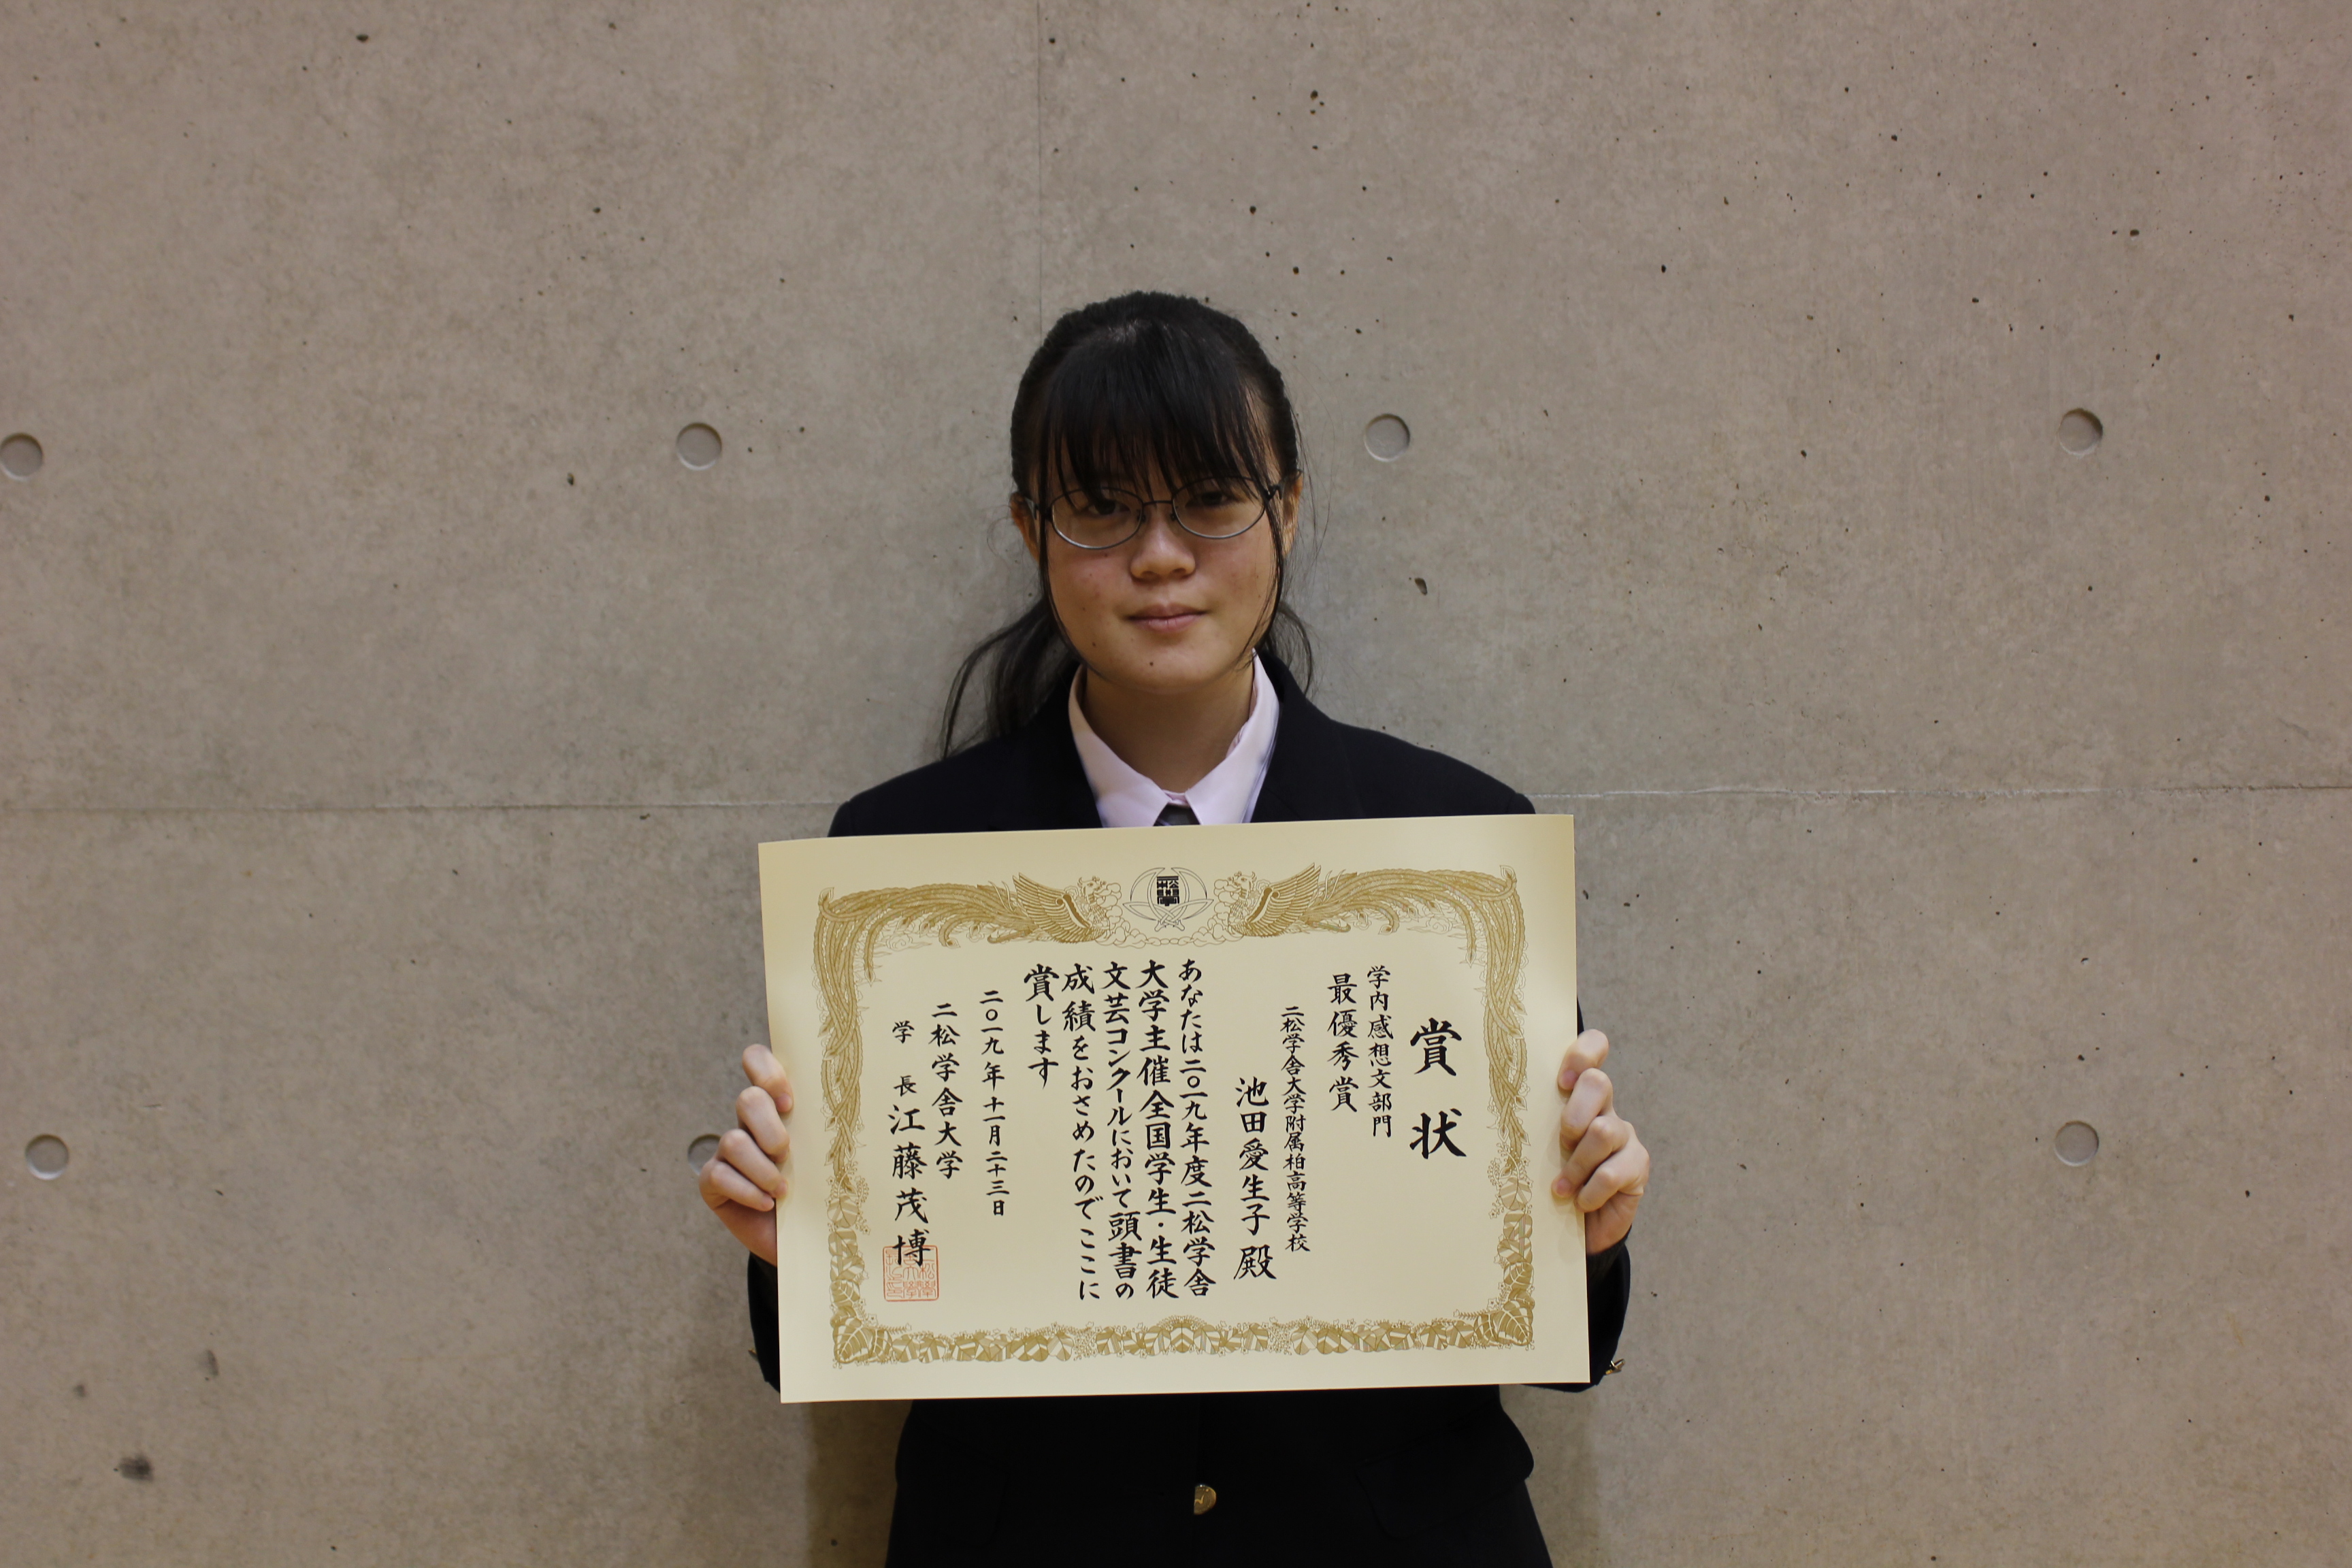 賞状
学内感想文部門
最優秀賞
二松学舎大学附属柏高等学校
池田愛生子 殿
あなたは二〇一九年度二松学舎
大学主催全国学生・生徒
文芸コンクールにおいて頭書の
成績をおさめたのでここに
賞します
二〇一九年十一月二十三日
二松学舎大学
学長 江藤茂博